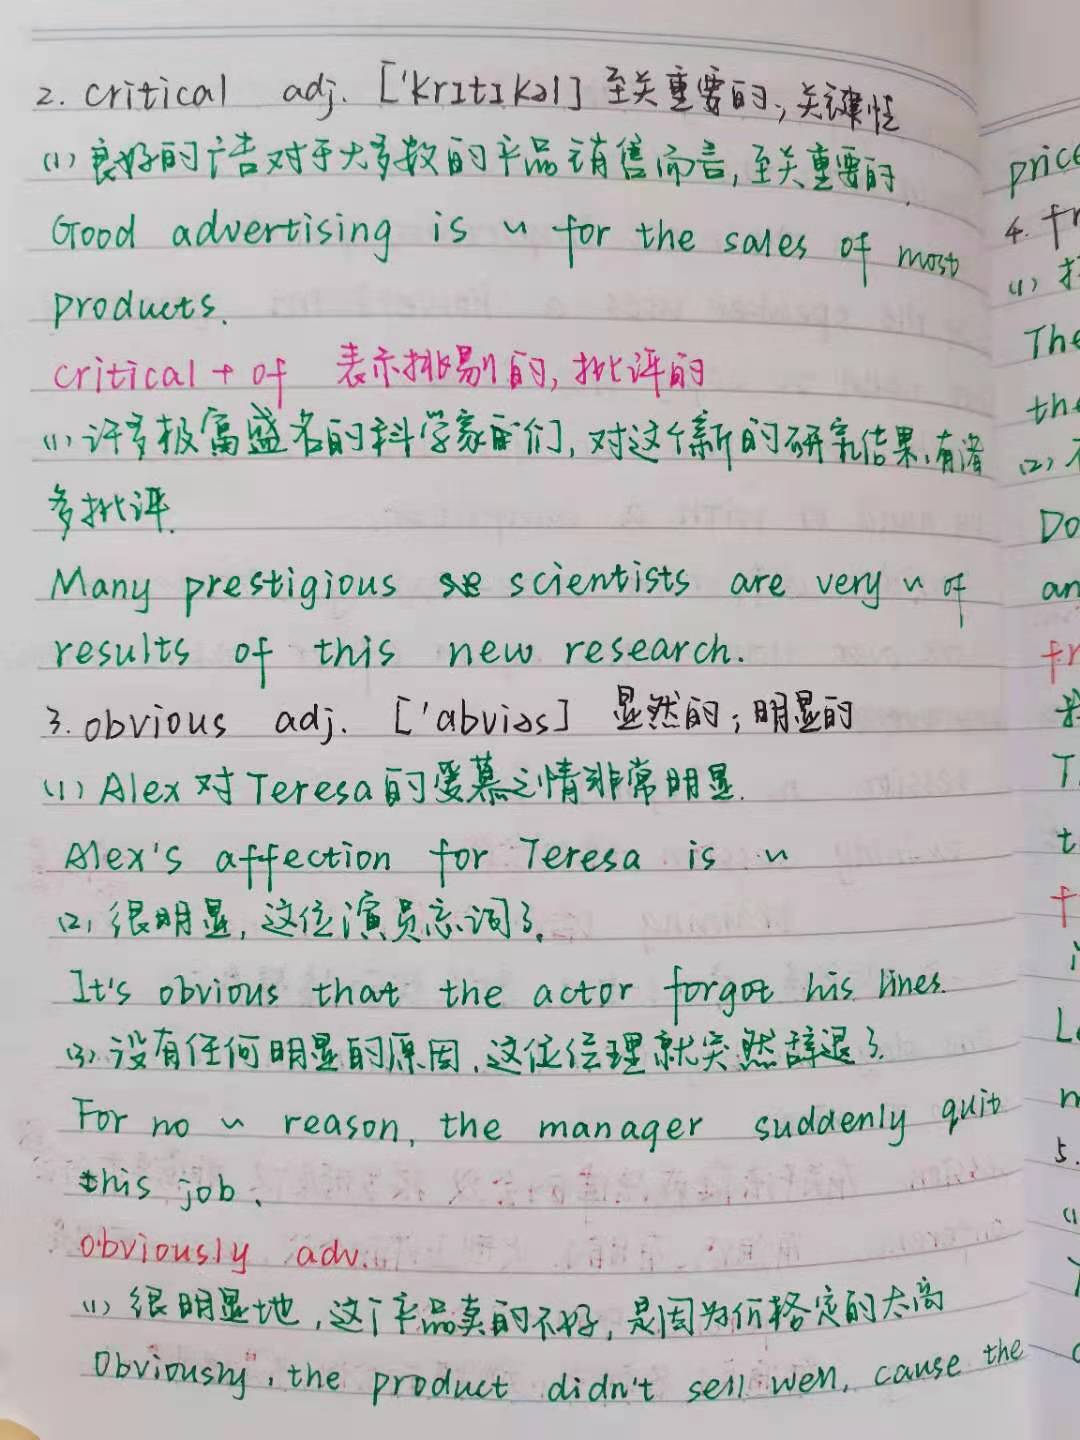 2. critical adj. ['krɪtɪkəl] 至关重要的；关键性
(1) 良好的广告对于大多数的产品销售而言，至关重要的.
Good advertising is ~ for the sales of most
products.
critical + of 表示挑剔的，批评的
(1) 许多极富盛名的科学家们，对这个新的研究结果，有诸
多批评.
Many prestigious scientists are very ~ of
results of this new research.
3. obvious adj. ['abviəs] 显然的；明显的
(1) Alex对Teresa的爱慕之情非常明显.
Alex's affection for Teresa is ~
(2) 很明显，这位演员忘词了.
It's obvious that the actor forgot his lines.
(3) 没有任何明显的原因，这位经理就突然辞退了.
For no ~ reason, the manager suddenly quit
this job.
obviously adv.
(1) 很明显地，这个产品卖的不好，是因为价格定的太高
Obviously, the product didn't sell well, cause the
price
4. fr
(1)
The
the
(2)
Do
an
fr
T
t
f
i
Le
m
5.
(1)